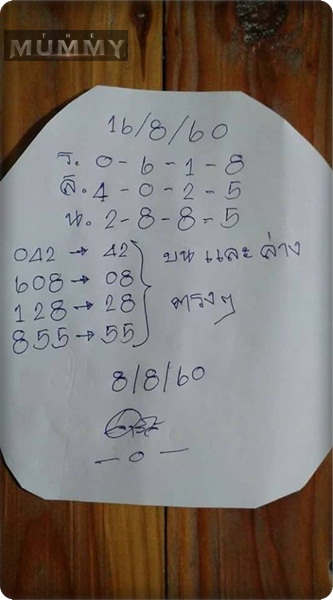 THE
MUMMY
16/8/60
ร. 0-6-1-8
สิ. 4-0-2-5
น. 2-8-8-5
042 → 42
608 → 08
128 → 28
855 → 55
บน และ ล่าง
ตรงๆ
8/8/60
- 0 -